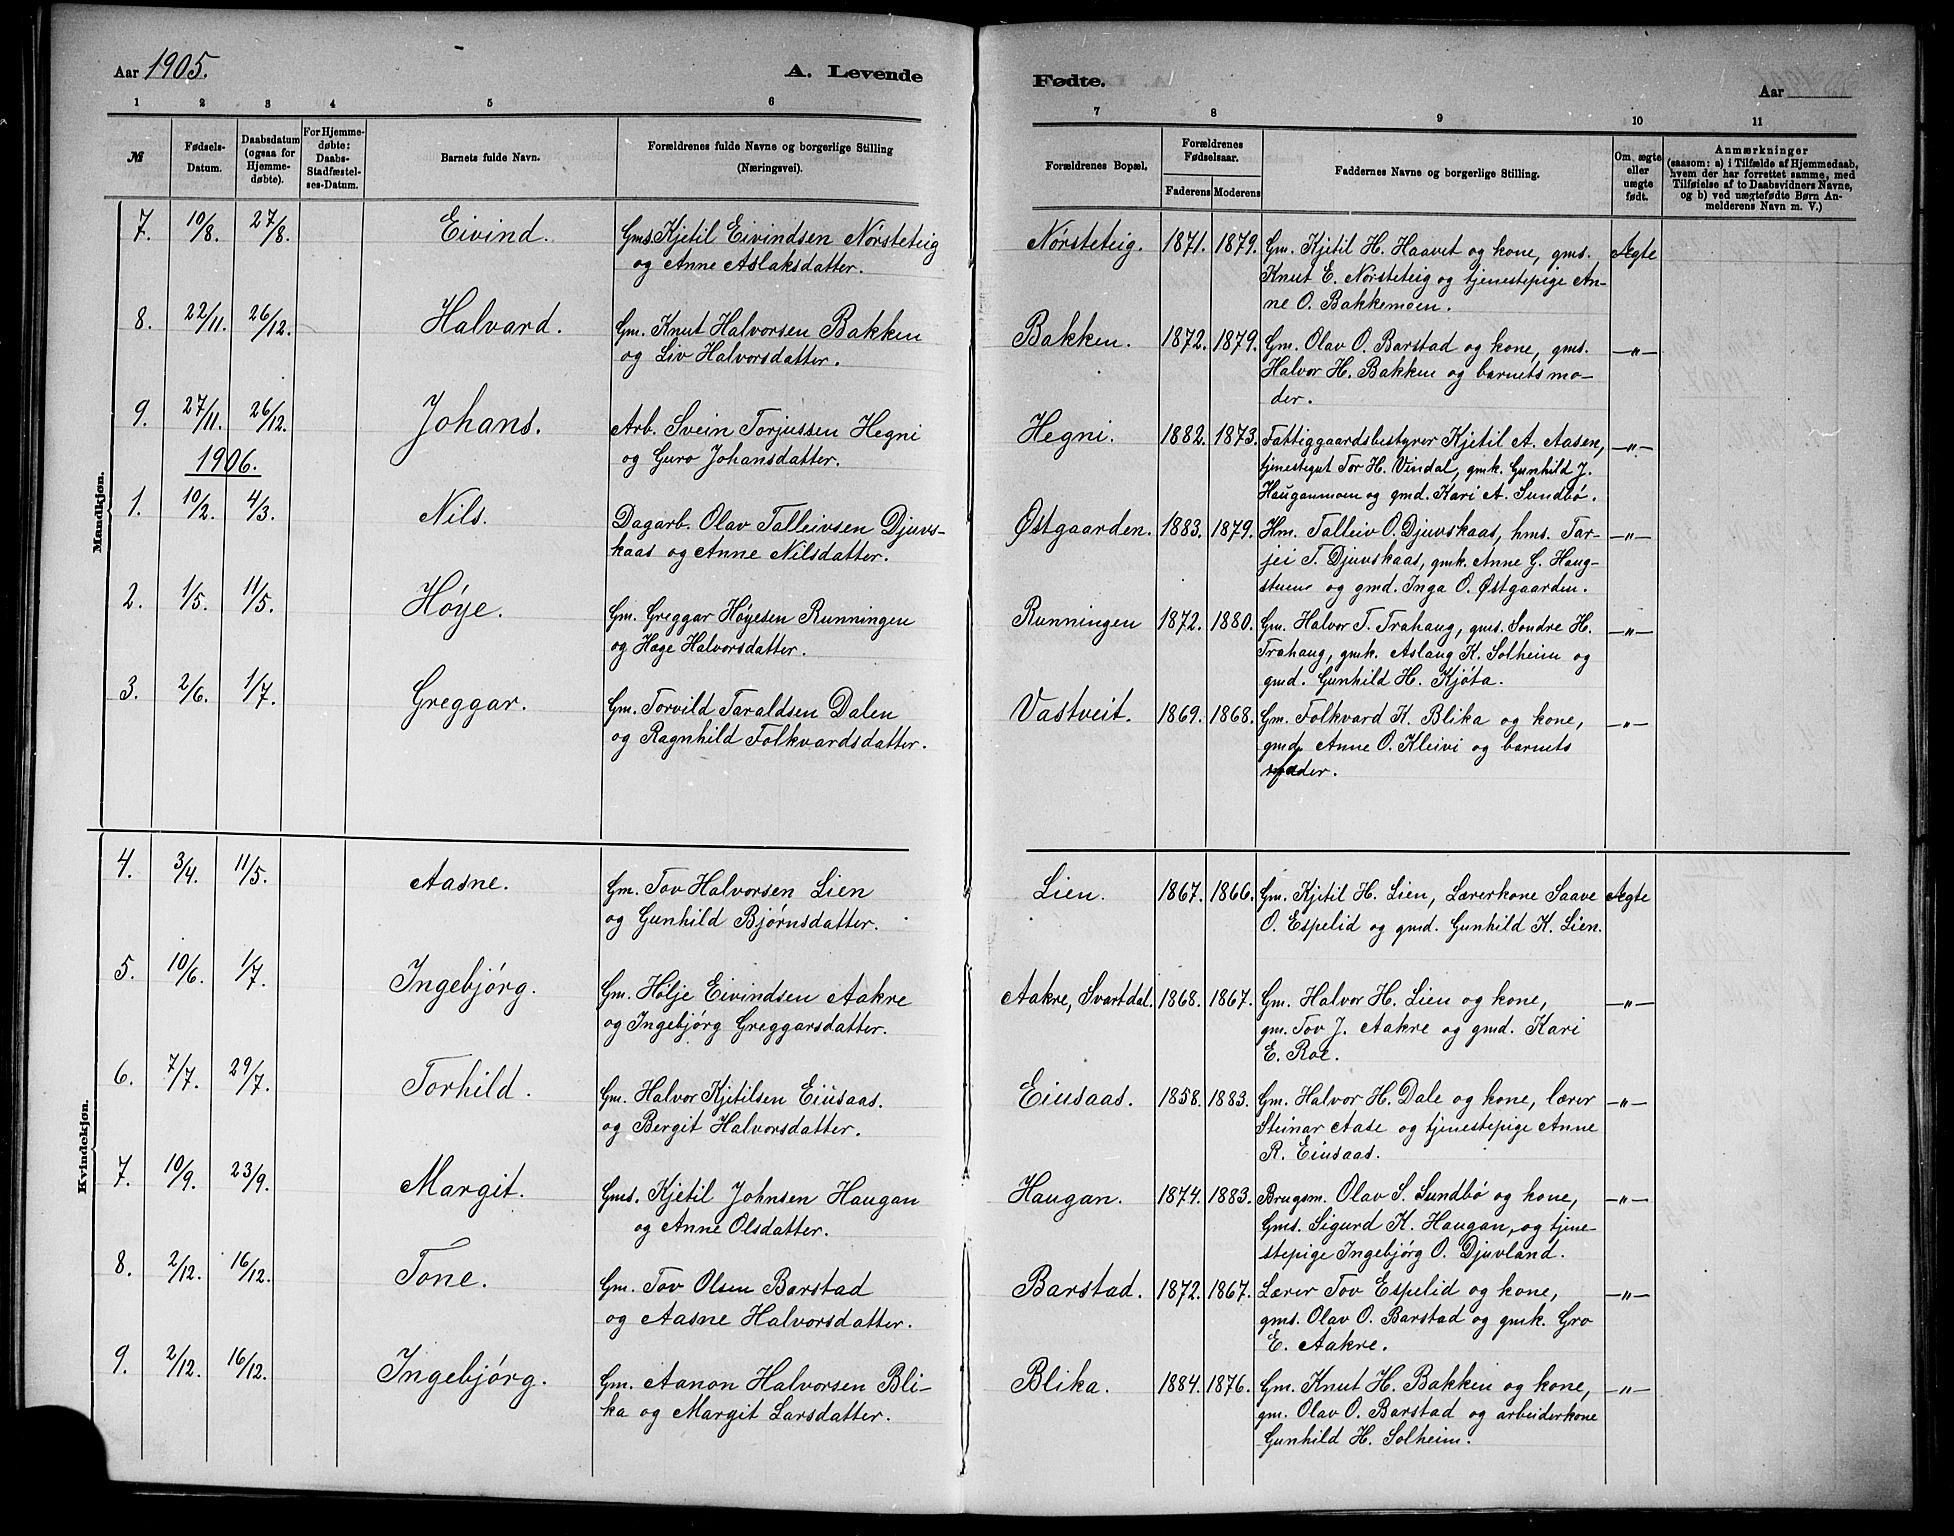 Aar 1905. A. Levende Fødte. Aar
1 2 3 4 5 6 7 8 9 10 11
№ Fødsels-Datum. Daabsdatum (ogsaa for Hjemme-døbte). For Hjemme-døbte: Daabs-Stadfæstel-ses-Datum. Barnets fulde Navn. Forældrenes fulde Navne og borgerlige Stilling (Næringsvei). Forældrenes Bopæl. Forældrenes Fødselsaar. Faderens Moderens Faddernes Navne og borgerlige Stilling. Om ægte eller uægte født. Anmærkninger (saasom: a) i Tilfælde af Hjemmedaab, hvem der har forrettet samme, med Tilføielse af to Daabsvidners Navne, og b) ved uægtefødte Børn An-melderens Navn m. V.)
Mandkjøn.
7. 10/8. 27/8. Eivind. Gms. Kjetil Eivindsen Nørsteteig Nørsteteig. 1871. 1879. Gm. Kjetil H. Haavet og kone, gms. Ægte
og Anne Aslaksdatter. Knut E. Nørsteteig og tjenestepige An-
ne O. Bakkemoen.
8. 22/11. 26/12. Halvard. Gm. Knut Halvorsen Bakken Bakken. 1872. 1879. Gm. Olav O. Barstad og kone, gms. —"—
og Liv Halvorsdatter. Halvor H. Bakken og barnets mo-
der.
9. 27/11. 26/12. Johans. Arb. Svein Torjussen Hegni Hegni. 1882. 1873. Fattiggaardsbestyrer Kjetil A. Aasen, —"—
og Guro Johansdatter. tjenestegut Tor H. Vindal, gmk. Gunhild J.
Hauganmoen og gmd. Kari A. Sundbø.
1906.
1. 10/2. 4/3. Nils. Dagarb. Olav Talleivsen Djuvs- Østgaarden. 1883. 1879. Hm. Talleiv O. Djuvskaas, hms. Tar- —"—
kaas og Anne Nilsdatter. jei T. Djuvskaas, gmk. Anne G. Haug-
stuene og gmd. Inga O. Østgaarden.
2. 1/5. 11/5. Høye. Gm. Greggar Høyesen Runningen Runningen 1872. 1880. Gm. Halvor T. Trahaug, gms. Sondre H. —"—
og Hæge Halvorsdatter. Trahaug, gmk. Aslaug K. Solheim og
gmd. Gunhild H. Kjøta.
3. 2/6. 1/7. Greggar. Gm. Torvild Taraldsen Dalen Vastveit. 1869. 1868. Gm. Folkvard K. Blika og kone, —"—
og Ragnhild Folkvardsdatter. gmd. Anne O. Kleivi og barnets
fader.
Kvindekjøn.
4. 3/4. 11/5. Aasne. Gm. Tov Halvorsen Lien Lien. 1867. 1866. Gm. Kjetil H. Lien, Lærerkone Saave Ægte
og Gunhild Bjørnsdatter. O. Espelid og gmd. Gunhild K. Lien.
5. 10/6. 1/7. Ingebjørg. Gm. Hølje Eivindsen Aakre Aakre, Svartdal. 1868. 1867. Gm. Halvor H. Lien og kone, —"—
og Ingebjørg Greggarsdatter. gm. Tov J. Aakre og gmd. Kari
E. Roe.
6. 7/7. 29/7. Torhild. Gm. Halvor Kjetilsen Eiusaas. Eiusaas. 1858. 1883. Gm. Halvor H. Dale og kone, lærer —"—
og Bergit Halvorsdatter. Steinar Aase og tjenestepige Anne
R. Eiusaas.
7. 10/9. 23/9. Margit. Gms. Kjetil Johnsen Haugan Haugan. 1874. 1883. Brugsm. Olav S. Sundbø og kone, —"—
og Anne Olsdatter. Gms. Sigurd K. Haugan, og tjene-
stepige Ingebjørg O. Djuvland.
8. 2/12. 16/12. Tone. Gm. Tov Olsen Barstad Barstad. 1872. 1867. Lærer Tov Espelid og kone, —"—
og Aasne Halvorsdatter. gms. Olav O. Barstad og gmk. Gro
E. Aakre.
9. 2/12. 16/12. Ingebjørg. Gm. Aanon Halvorsen Bli- Blika. 1884. 1876. Gm. Knut H. Bakken og kone, —"—
ka og Margit Larsdatter. gm. Olav O. Barstad og arbeiderkone
Gunhild H. Solheim.